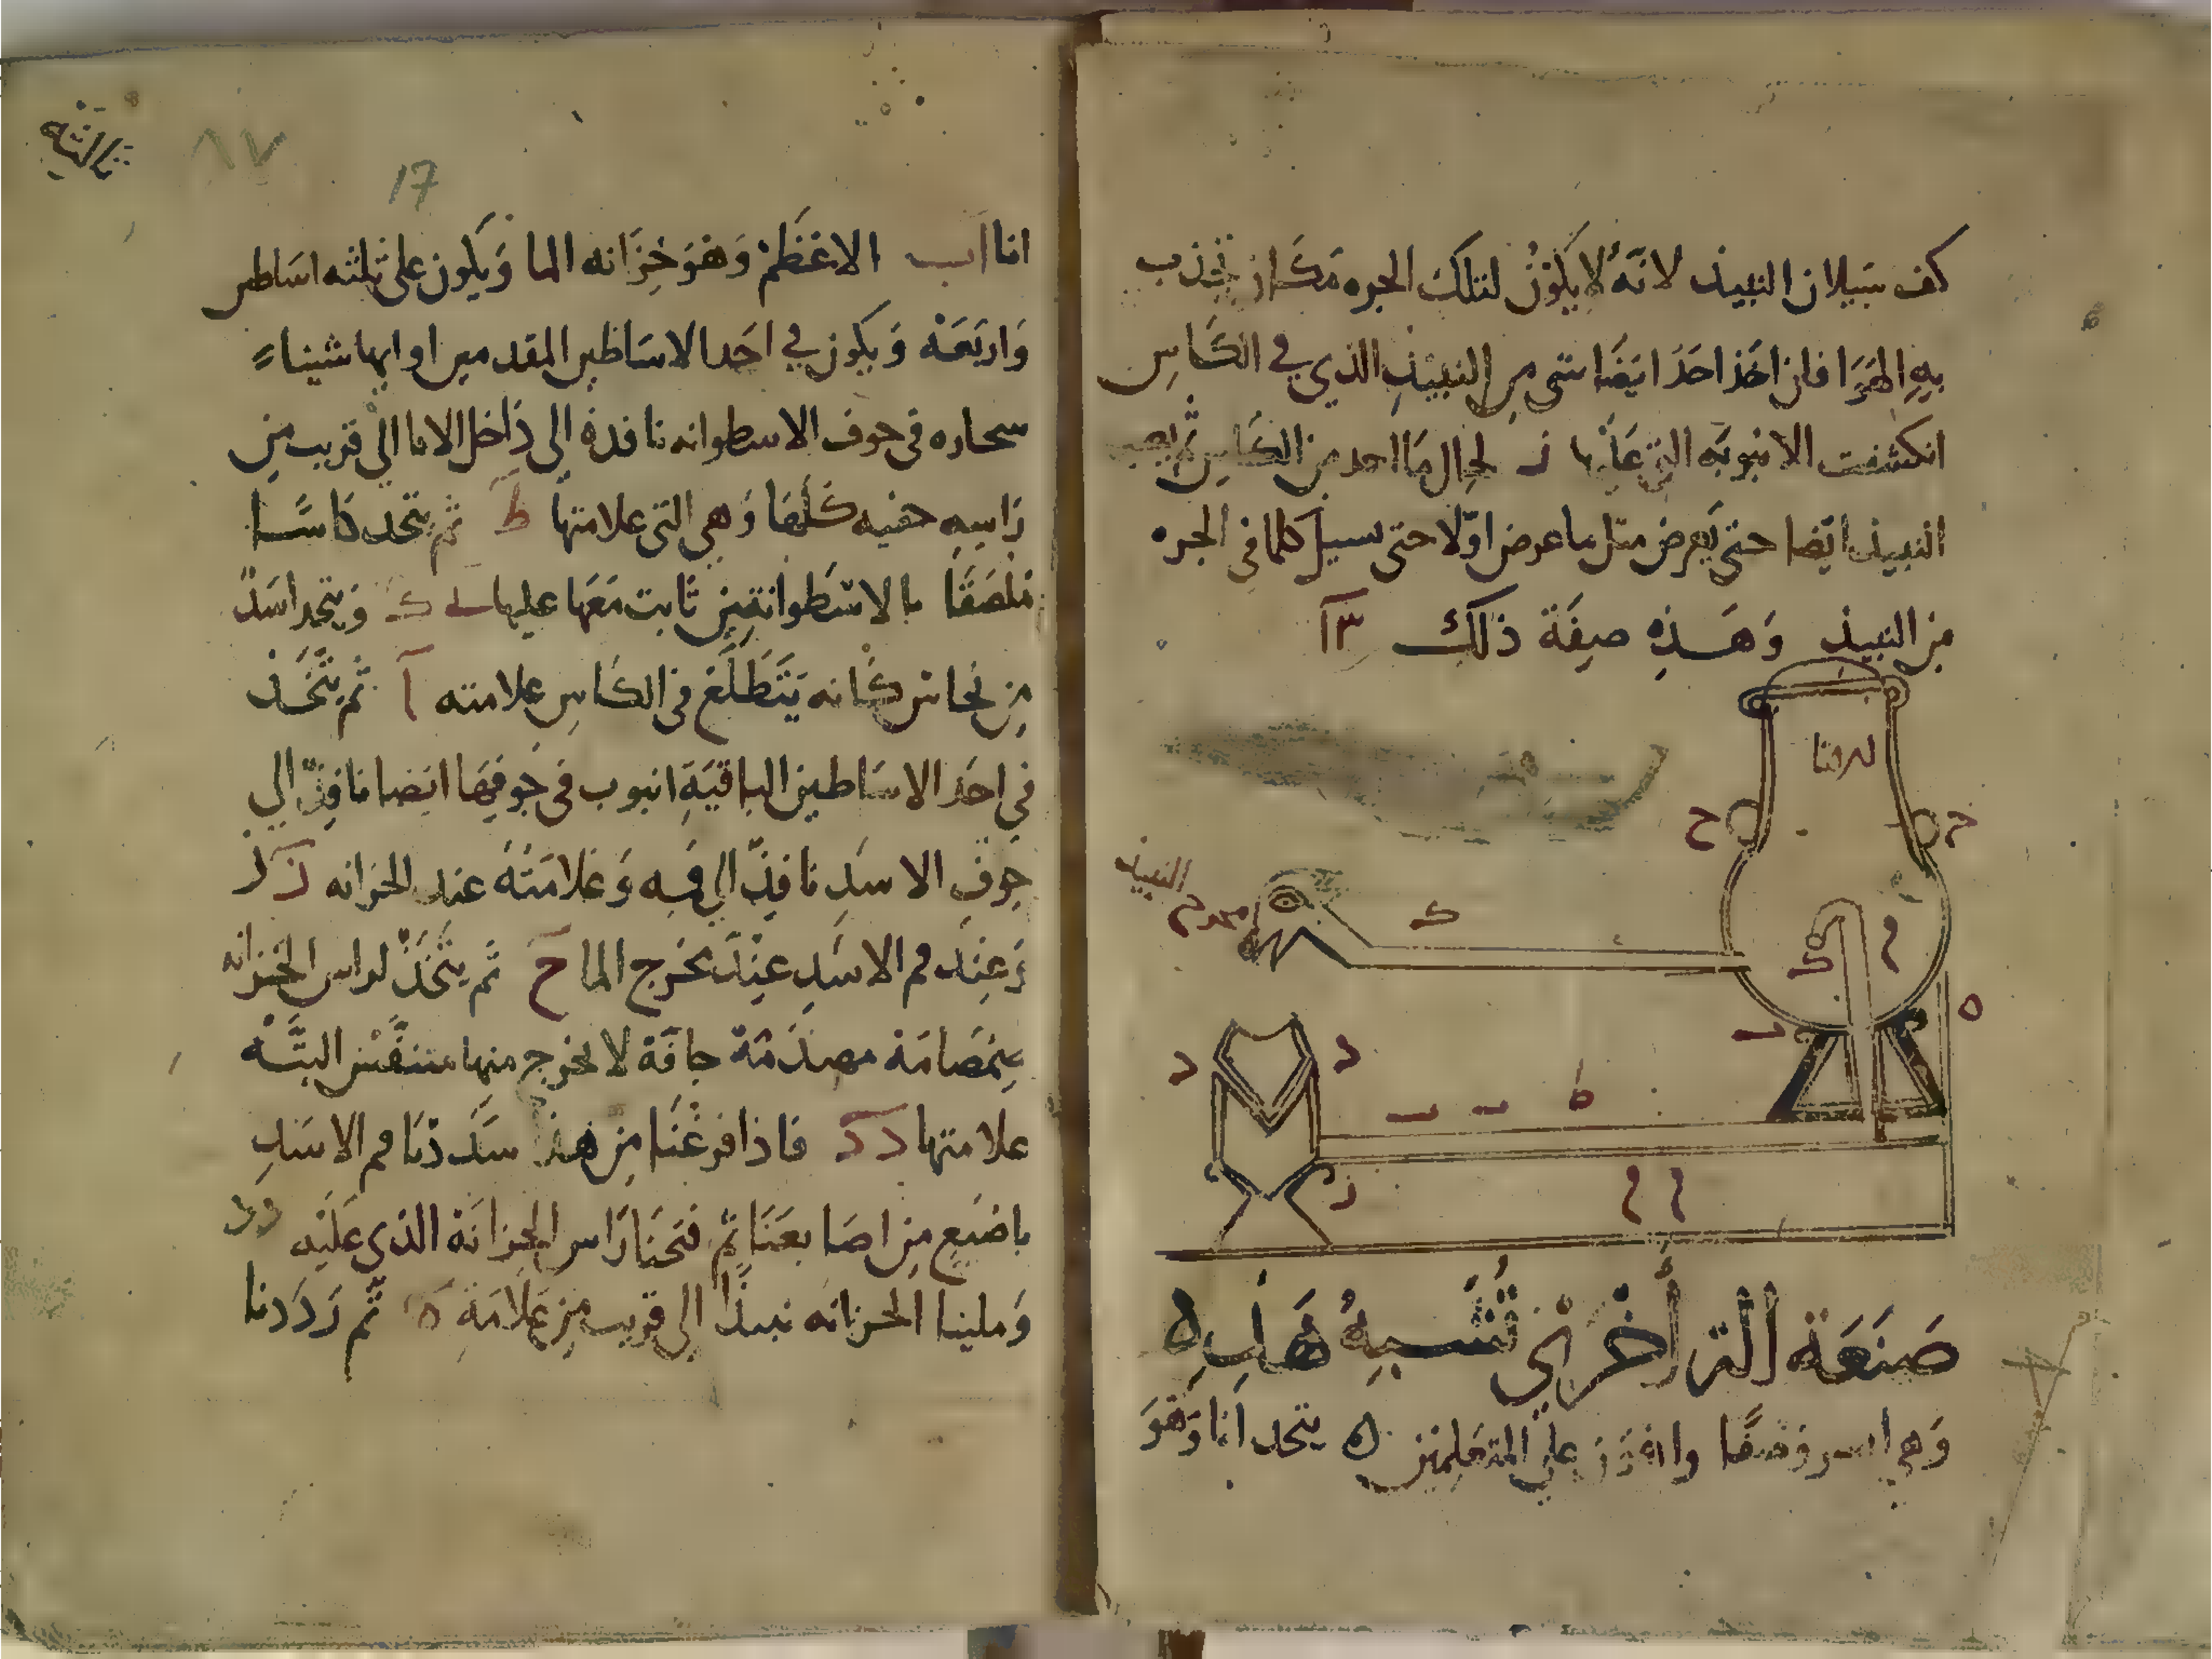 كف سيلان النبيذ لانه لا يكون لتلك الجره مكان تجذب
به الهوا فان اخذ احد ايضا شى من النبيذ الذي في الكاس
انكشفت الانبوبه التي عليها ز لحال ما احد من الكاس ثم
النبيذ ايضا حتى يعرض مثل ما عرض اولا حتى يسيل كلما في الجره
من النبيذ وهذه صفة ذلك
ح
ح
النبيذ
ك
م
ط
ه
د
د
ط
ز
م م
صنعة الة أخرى تشبه هذه
وهي وصفا على المتعلمين ه يتحد انا وهو
١٧
17
انا اب الاعظم وهو خزانه الما ويكون على ثلثه اساطير
واربعه ويكون في احد الاساطين المقدمين او ايها شيناء
سحاره في جوف الاسطوانه نافده الى داخل الانا الى قريب من
راسه حفيه كلها وهي التي علامتها ط ثم يتحد كاسا
ملصقا بالاسطوانتين ثابت معها عليها ك ويتحد اسد
من نحاس كانه يتطلع في الكاس علامته ا ثم يتخذ
في احد الاساطين الباقية انبوب في جوفها ايضا نافذ الى
جوف الاسد نافذ الى فيه وعلامته عند الخزانه
وعند فم الاسد عند مخرج الما ح ثم يتخذ لراس الخزانه
صمامة مهندمة جافة لا يخرج منها متنفس البته
علامتها د د فاذا فرغنا من هذا سددنا فم الاسد
باصبع من اصابعنا ثم فتحنا راس الخزانة الذي عليه د د
وملينا الخزانه نبيذا الى قريب من علامة ه ثم رددنا